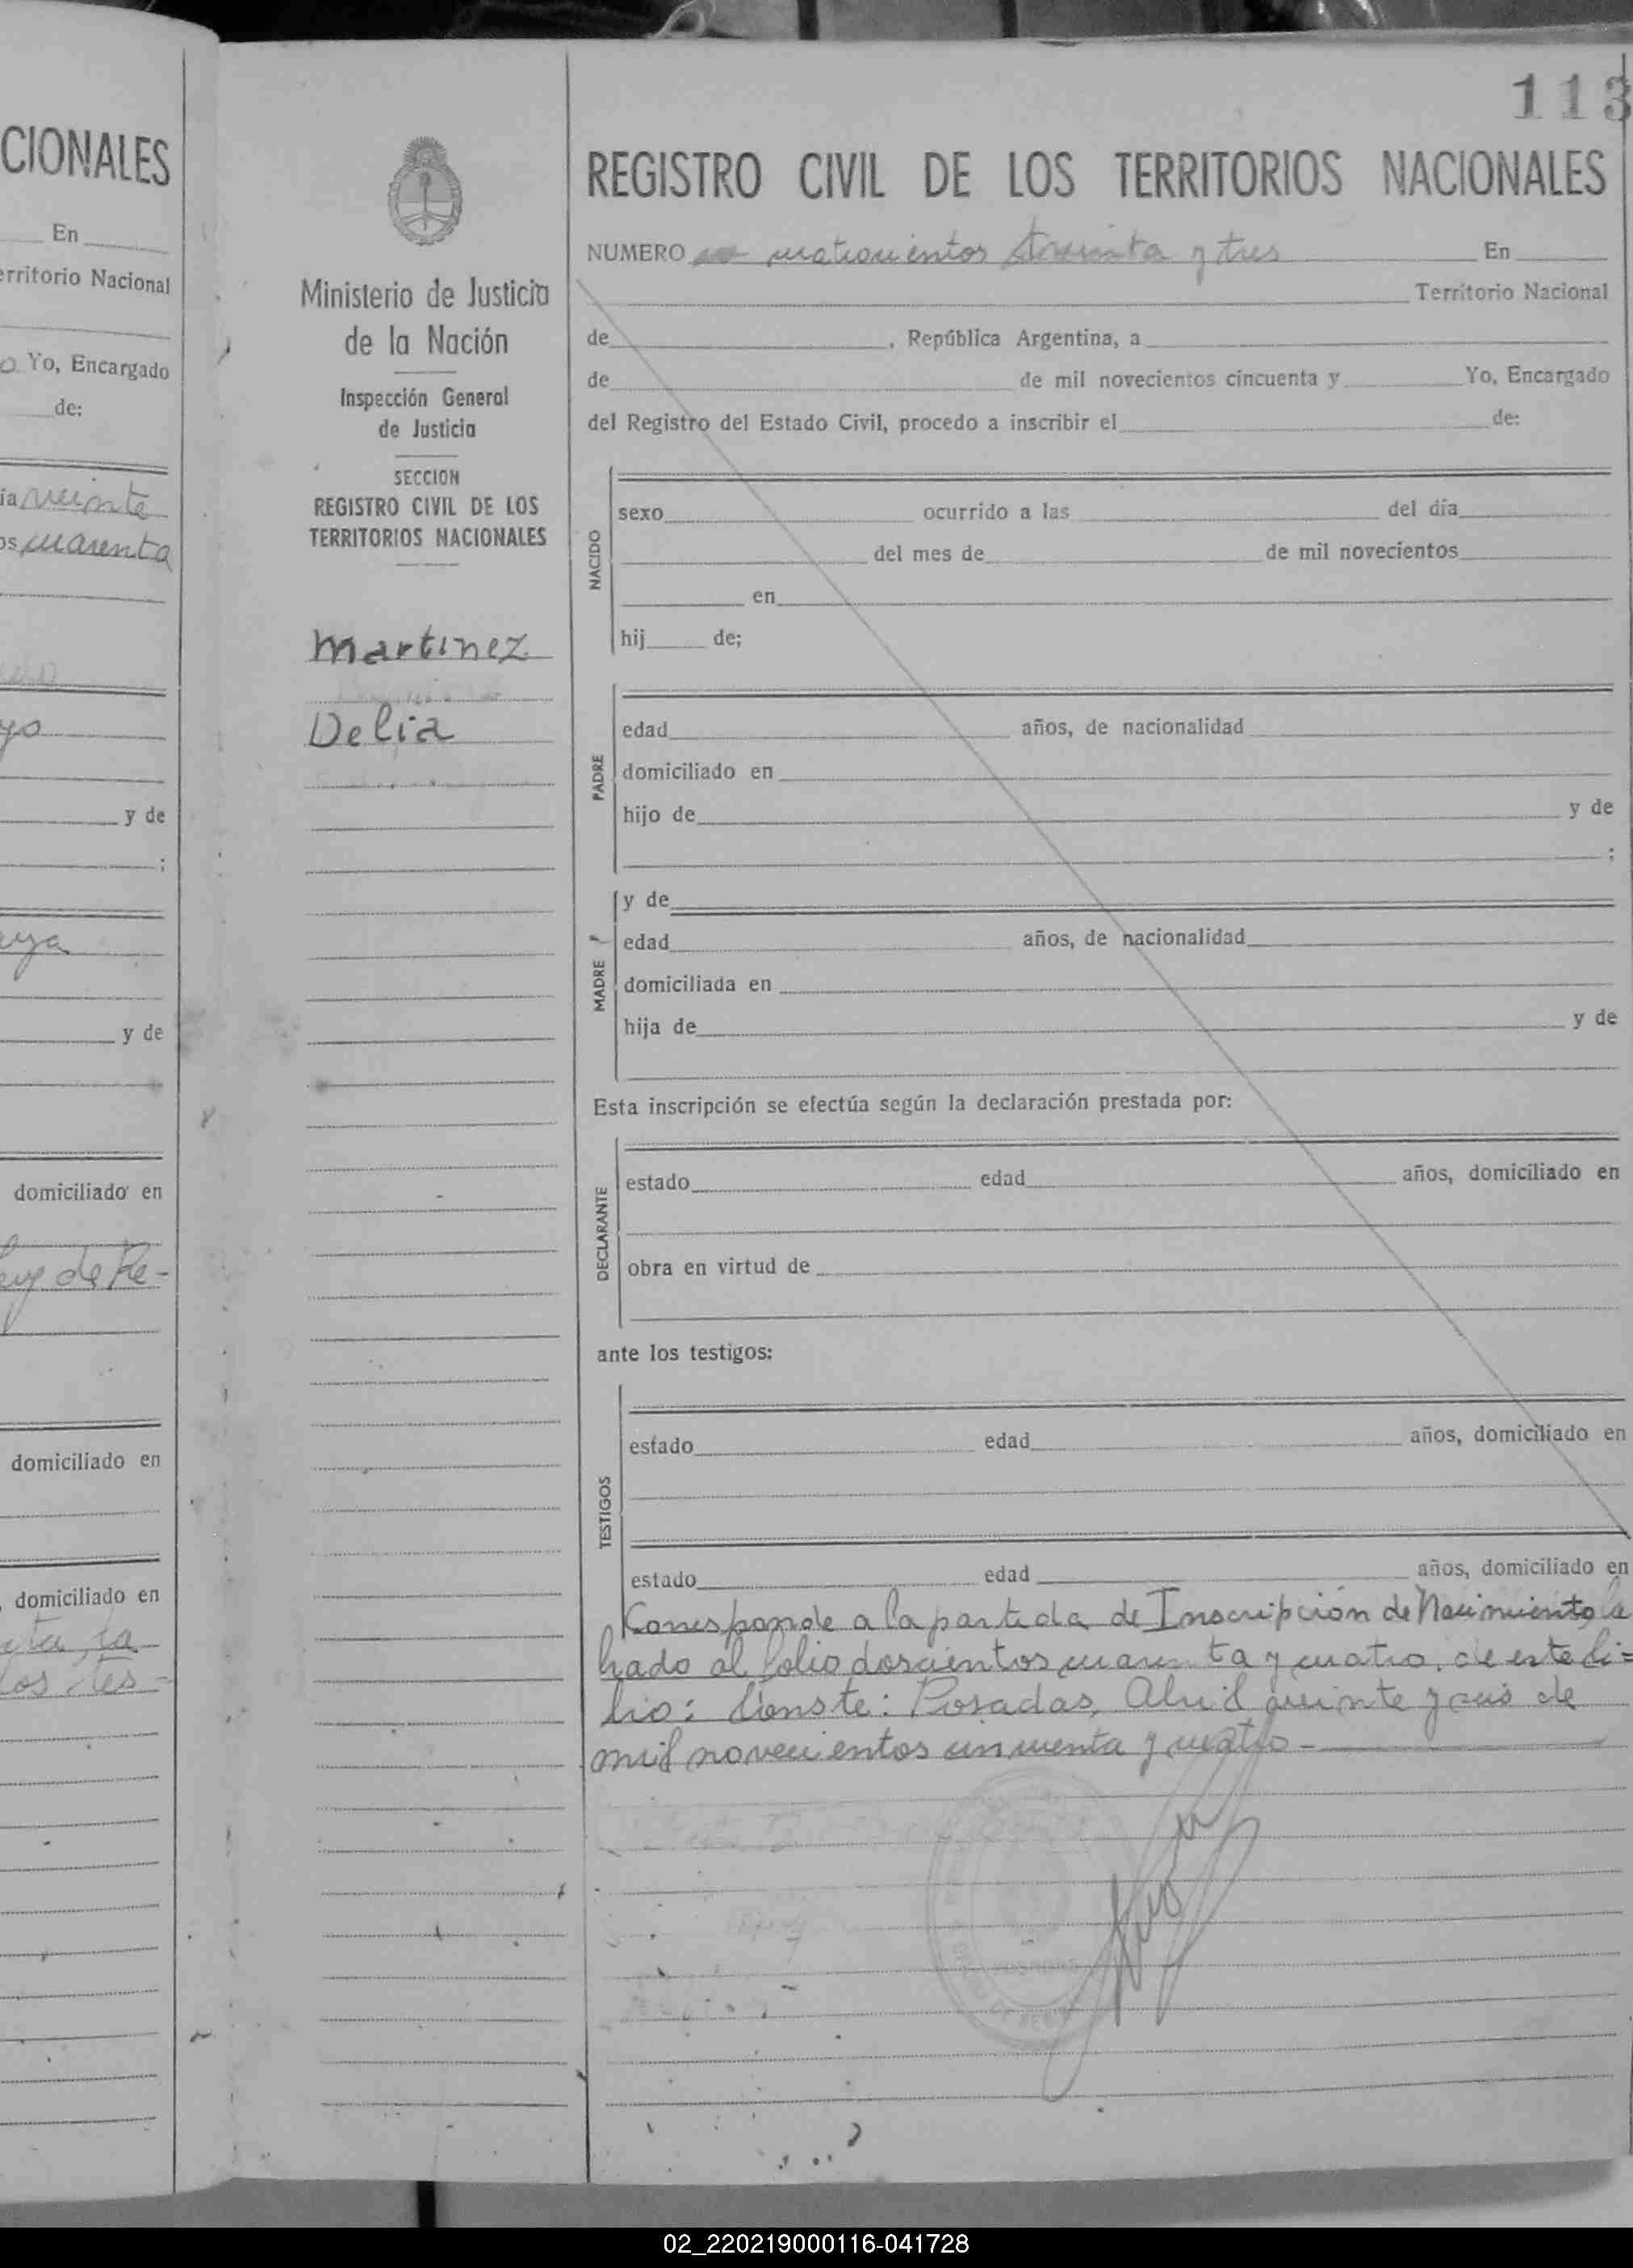 CIONALES
En
erritorio Nacional
Yo, Encargado
de:
ía veinte
os cuarenta
yo
y de
;
aya
y de
domiciliado en
ley de Re-
domiciliado en
, domiciliado en
la
los tes-
Ministerio de Justicia
de la Nación
Inspección General
de Justicia
SECCION
REGISTRO CIVIL DE LOS
TERRITORIOS NACIONALES
Martinez
Delia
113
REGISTRO CIVIL DE LOS TERRITORIOS NACIONALES
NUMERO cuatrocientos treinta y tres En
Territorio Nacional
de , República Argentina, a
de de mil novecientos cincuenta y Yo, Encargado
del Registro del Estado Civil, procedo a inscribir el de:
NACIDO
sexo ocurrido a las del día
del mes de de mil novecientos
en
hij de;
PADRE
edad años, de nacionalidad
domiciliado en
hijo de y de
;
MADRE
y de
edad años, de nacionalidad
domiciliada en
hija de y de
Esta inscripción se efectúa según la declaración prestada por:
DECLARANTE
estado edad años, domiciliado en
obra en virtud de
ante los testigos:
TESTIGOS
estado edad años, domiciliado en
estado edad años, domiciliado en
Corresponde a la partida de Inscripción de Nacimiento, la
brado al folio doscientos cuarenta y cuatro, de este li=
bro: Conste: Posadas, Abril veinte y seis de
mil novecientos cincuenta y cuatro -
02_220219000116-041728